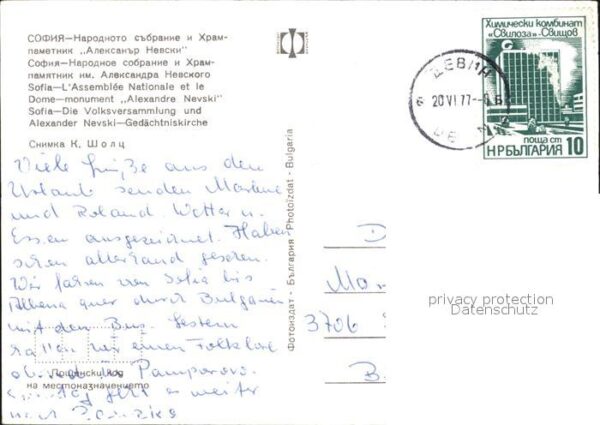 СОФИЯ—Народното събрание и Храм-
паметник „Алексанър Невски"
София—Народное собрание и Храм-
памятник им. Александра Невского
Sofia—L'Assemblée Nationale et le
Dome—monument „Alexandre Nevski"
Sofia—Die Volksversammlung und
Alexander Nevski—Gedächtniskirche
Снимка К. Шолц
Viele Grüße aus dem
Urlaub senden
und Roland. Wetter u.
Essen ausgezeichnet. Haben
schon allerhand gesehen.
Wir fahren von Sofia bis
Albena quer durch Bulgarien
mit dem Bus. Gestern
hatten wir einen Folklore
Pamporovo.
geht es weiter
nach
Пощенски код
на местоназначението
Фотоиздат - България - Photoizdat - Bulgaria
Химически комбинат
„Свилоза"-Свищов
поща ст
НРБЪЛГАРИЯ 10
ДЕВИН
20 VI 77
D
3706
privacy protection
Datenschutz